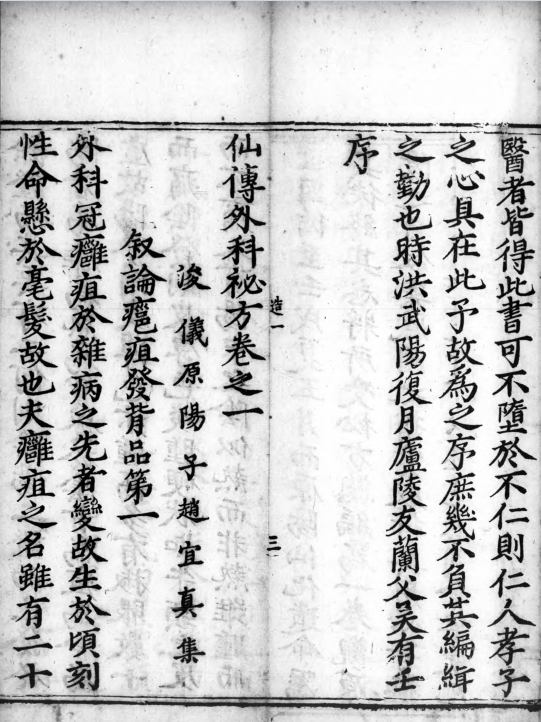 醫者皆得此書可不墮於不仁則仁人孝子
之心具在此予故爲之序庶幾不負其編緝
之勤也時洪武陽復月廬陵友蘭父吴有壬
序
造一
三
仙傳外科祕方卷之一
浚儀原陽子趙宜真集
叙論癰疽發背品第一
外科冠癰疽於雜病之先者變故生於頃刻
性命懸於毫髮故也夫癰疽之名雖有二十